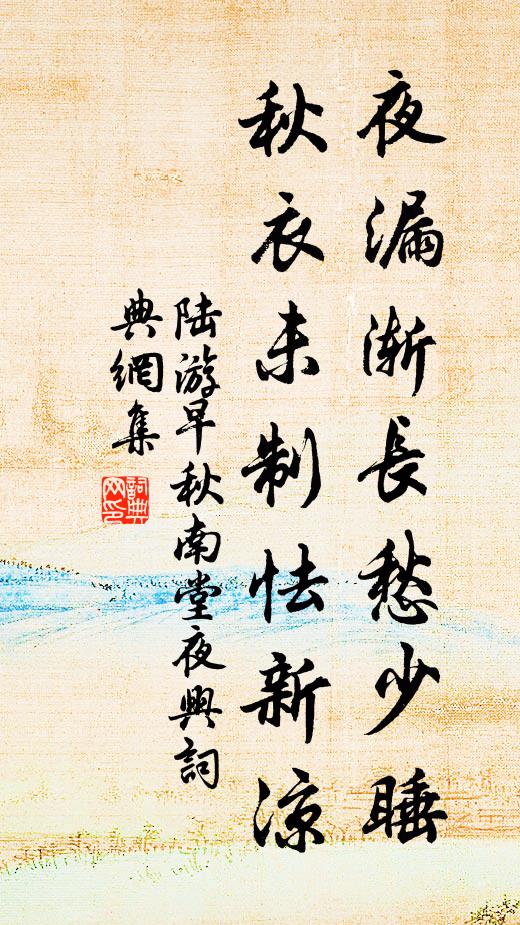 夜漏漸長愁少睡
秋衣未制怯新涼
陆游早秋南堂夜興詞
典網集
詞典网印